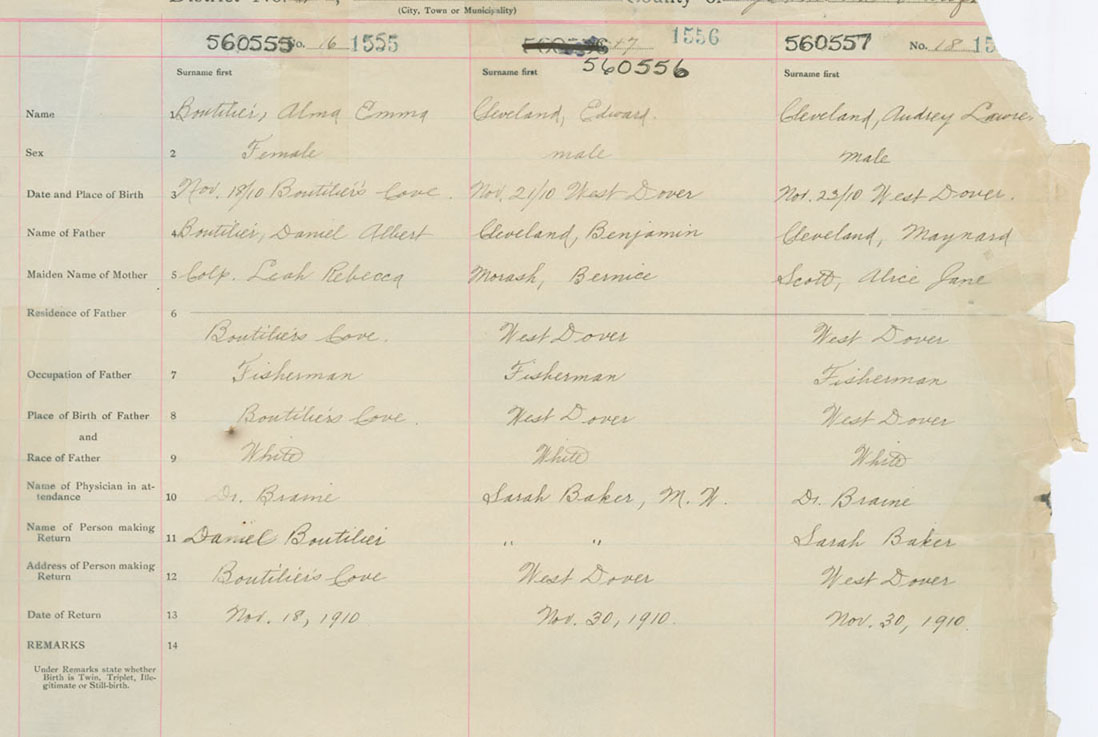 District No.
County of
(City, Town or Municipality)
560555 No. 16 1555
17 1556
560556
560557 No. 18 15
Surname first Surname first Surname first
Name 1 Boutilier, Alma Emma Cleveland, Edward. Cleveland, Audrey
Sex 2 Female male male
Date and Place of Birth 3 Nov. 18/10 Boutilier's Cove. Nov. 21/10 West Dover Nov. 23/10 West Dover.
Name of Father 4 Boutilier, Daniel Albert Cleveland, Benjamin Cleveland, Maynard
Maiden Name of Mother 5 Colp. Leah Rebecca Morash, Bernice Scott, Alice Jane
Residence of Father 6
Boutilier's Cove. West Dover West Dover
Occupation of Father 7 Fisherman Fisherman Fisherman
Place of Birth of Father 8 Boutilier's Cove. West Dover West Dover
and
Race of Father 9 White White White
Name of Physician in at-
tendance 10 Dr. Braine Sarah Baker, M. W. Dr. Braine
Name of Person making
Return 11 Daniel Boutilier " " Sarah Baker
Address of Person making
Return 12 Boutilier's Cove West Dover West Dover
Date of Return 13 Nov. 18, 1910 Nov. 30, 1910. Nov. 30, 1910.
REMARKS 14
Under Remarks state whether
Birth is Twin, Triplet, Ille-
gitimate or Still-birth.